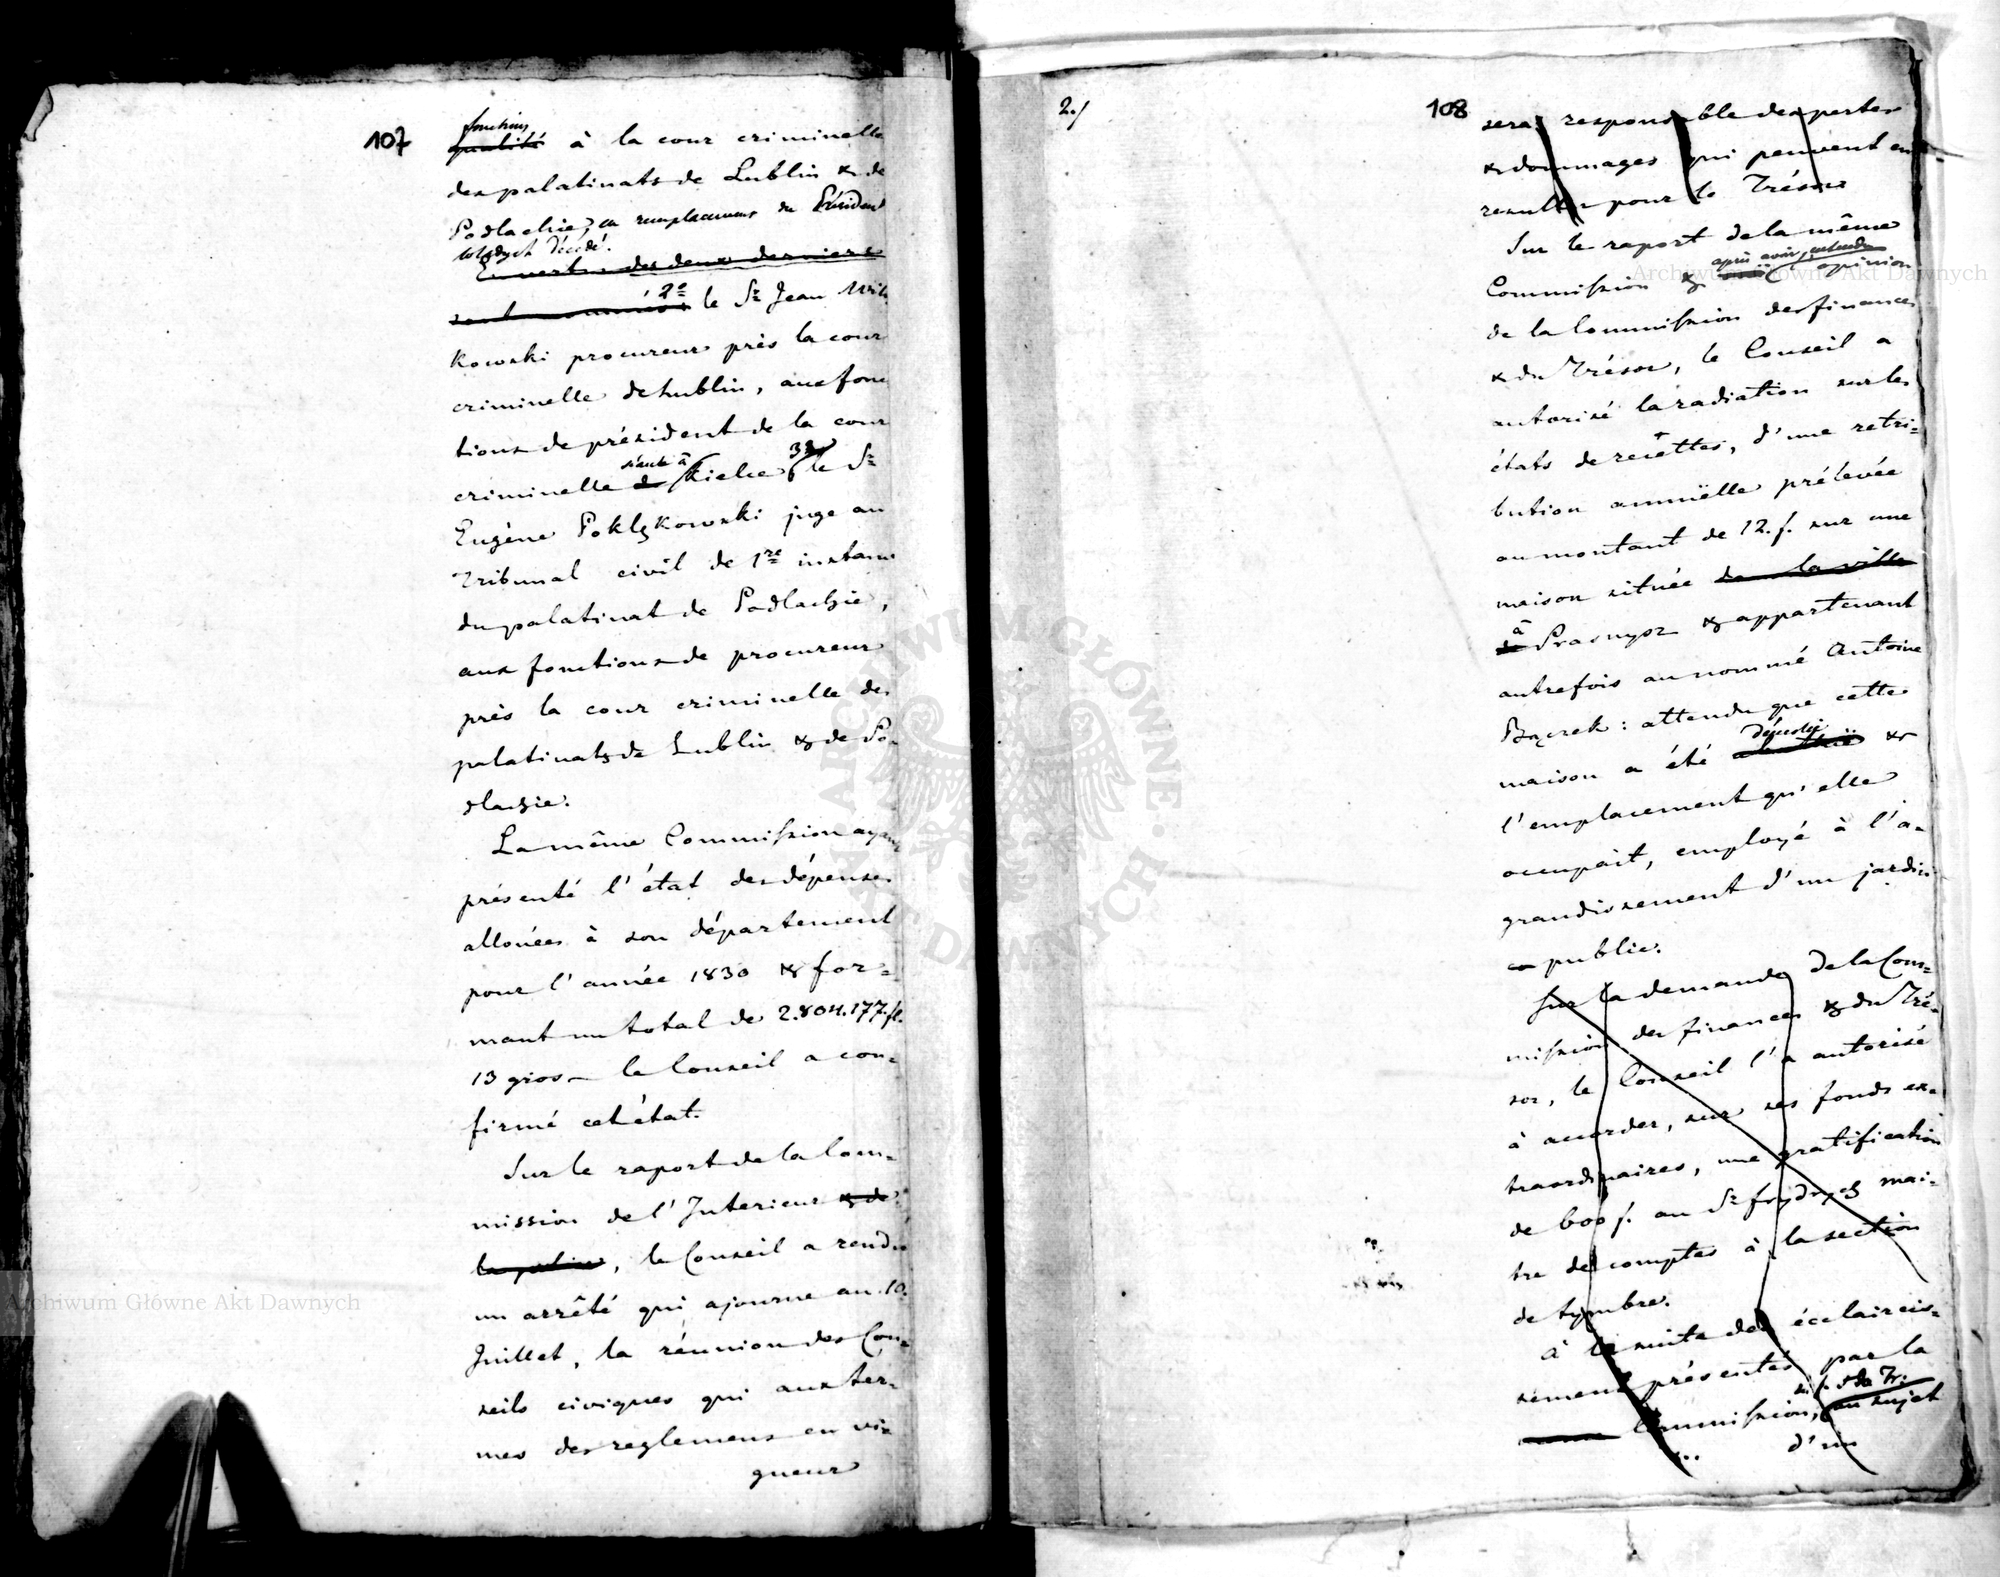 107
fonctions
qualité à la cour criminelle
des palatinats de Lublin & de
Podlachie, en remplacement du Président
décédé.
En vertu des deux derniers
sont nommés: 2º le Sr Jean Wit
kowski procureur près la cour
criminelle de Lublin, aux fonc
tions de président de la cour
séante à
criminelle de Kielce 3º le Sr
Eugène Poklękowski juge au
Tribunal civil de 1re instance
du palatinat de Podlachie,
aux fonctions de procureur
près la cour criminelle des
palatinats de Lublin & de Po-
dlachie.
La même Commission ayant
présenté l'état des dépenses
allouées à son département
pour l'année 1830 & for=
mant un total de 2.804.177.fl.
13 gros — le Conseil a con=
firmé cet état.
Sur le raport de la Com=
mission de l'Interieur & de
la police, le Conseil a rendu
un arrêté qui ajourne au 10.
Juillet, la réunion des Con=
seils civiques qui aux ter=
mes des reglemens en vi=
gueur
2./
108
sera responsable des pertes
& dommages qui peuvent en
resulter pour le Trésor
Sur le raport de la même
après avoir entendu
Commission & opinion
de la Commission des finances
& du Trésor, le Conseil a
autorisé la radiation sur les
états de recettes, d'une retri=
bution annuëlle prélevée
au montant de 12. f. sur une
maison située de la ville
à
de Prasnysz & appartenant
autrefois au nommé Antoine
Bączek: attendu que cette
démolie
maison a été &
l'emplacement qu'elle
occupait, employé à l'a=
grandissement d'un jardin
public.
Sur la demande de la Com=
mission des finances & du Tré=
sor, le Conseil l'a autorisé
à accorder, sur ses fonds ex=
traordinaires, une gratification
de 600 f. au Sr Frydrych mai=
tre de comptes à la section
de tymbre.
À la suite des éclaircis=
semens présentés par la
d. f. & du Tr:
Commission, au sujet
d'un
Archiwum Główne Akt Dawnych
Archiwum Główne Akt Dawnych
ARCHIWUM GŁÓWNE · AKT DAWNYCH ·